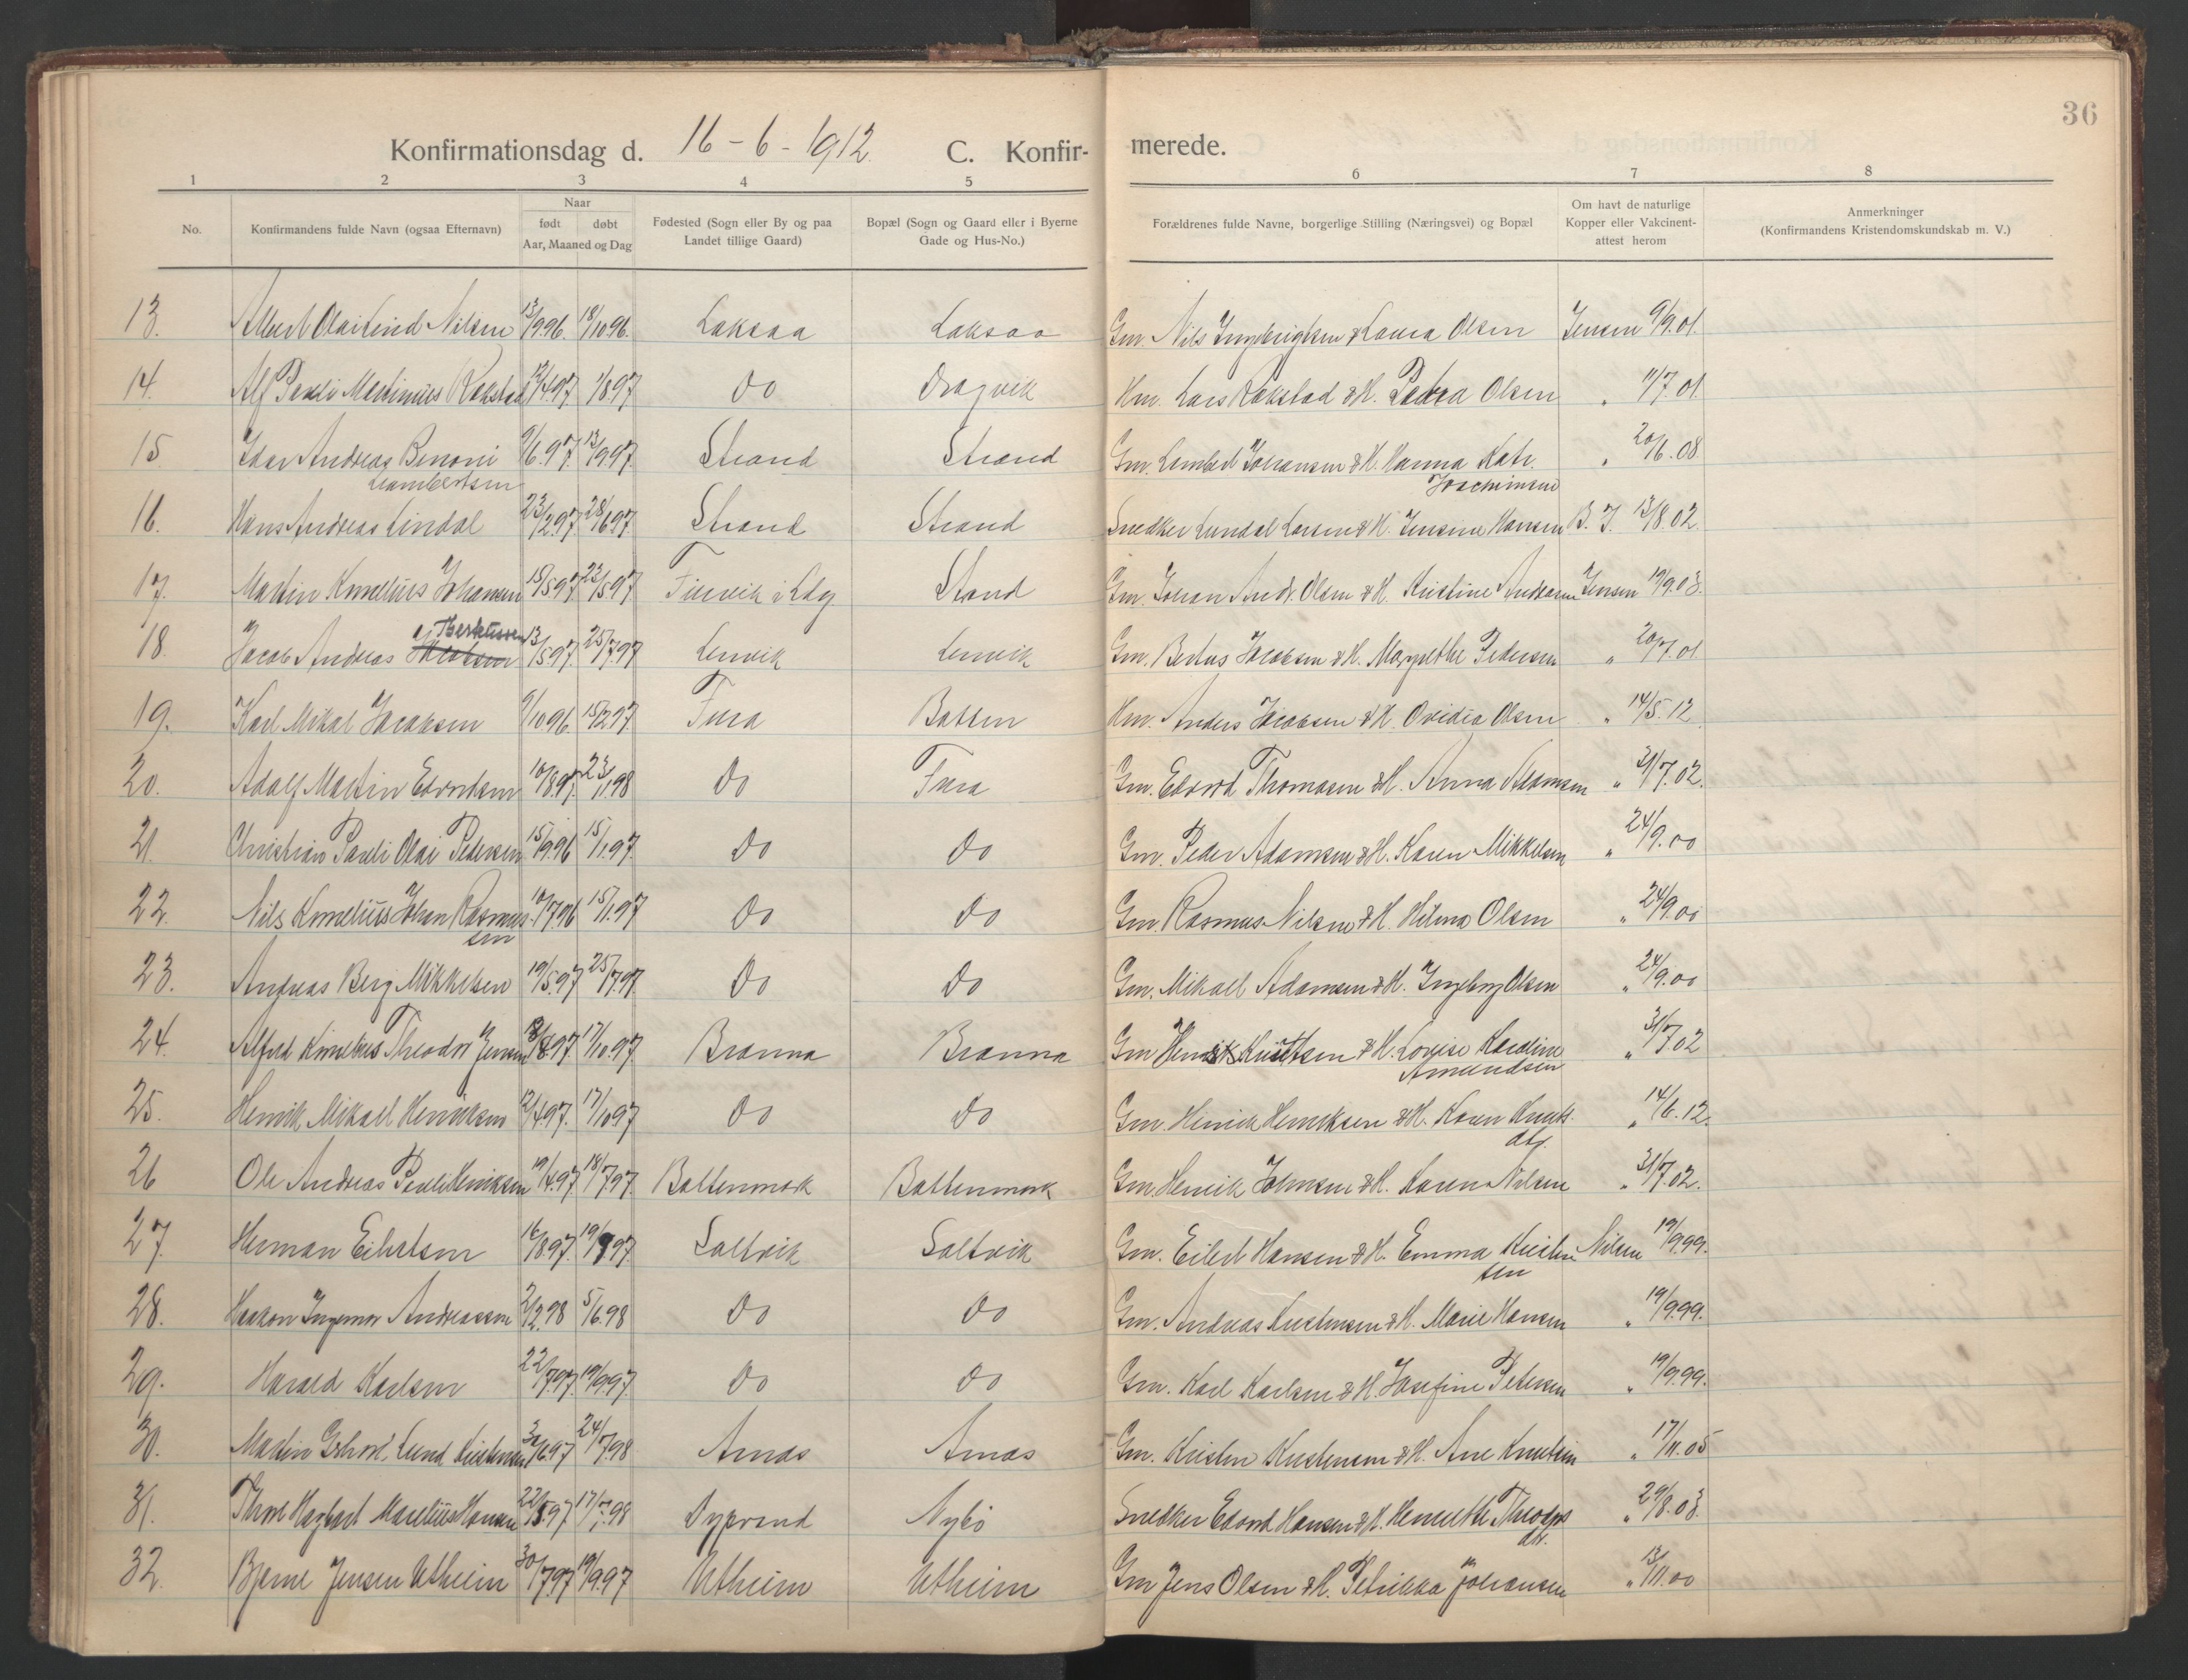 36
Konfirmationsdag d. 16-6-1912. C. Konfirmerede.
1 2 3 4 5 6 7 8
No.
Konfirmandens fulde Navn (ogsaa Efternavn)
Naar
født døbt
Aar, Maaned og Dag
Fødested (Sogn eller By og paa
Landet tillige Gaard)
Bopæl (Sogn og Gaard eller i Byerne
Gade og Hus-No.)
Forældrenes fulde Navne, borgerlige Stilling (Næringsvei) og Bopæl
Om havt de naturlige
Kopper eller Vakcinent-
attest herom
Anmerkninger
(Konfirmandens Kristendomskundskab m. V.)
13. Albert Olai Nilsen 13/9.96. 18/10.96. Laksaa Laksaa Gm. Nils Ingebrigtsen & Laura Olsen Jensen 9/9.01.
14. Alf Pauli Martinius Rokstad /4.97 1/8.97 Do Dragvik Hm. Lars Rokstad & H. Petra Olsen " 11/7.01.
15. Idar Andreas Benoni 9/6.97. 13/9.97. Strand Strand Gm. Lambert Johansen & H. Hanna Katr. " 20/6.08
Lambertsen Joachimsen
16. Hans Andreas Lindal 23/2.97. 28/6.97 Strand Strand Snedker Lindal Larsen & H. Jensine Hansen B. J. 13/8.02.
17. Martin Kornelius Johansen 15/5.97 23/5.97 i Ldg Stand Gm. Johan Andr. Olsen & H. Kristine Andersen Jensen 19/9.03.
18. Jacob Andreas Jacobsen Bertussen 13/5.97. 25/7.97 Lenvik Lenvik Gm. Bertus Jacobsen & H. Margrethe Pedersen " 20/7.01
19. Karl Mikal Jacobsen 9/10.96. 15/2.97. Fura Ballen Hm. Anders Jacobsen & H. Ovidia Olsen " 14/5.12
20. Adolf Martin Edvardsen 10/8.97. 23/1.98 Do Fura Gm. Edvard Thomasen & H. Anna Adamsen " 31/7.02.
21. Christian Pauli Olai Pedersen 15/9.96 15/1.97. Do Do Gm. Peder Adamsen & H. Karen Mikkelsen " 24/9.00
22. Nils Kornelius Johan Rasmus- 10/7.96 15/1.97 Do Do Gm. Rasmus Nilsen & H. Hilma Olsen " 24/9.00
sen
23. Andreas Berg Mikkelsen 19/5.97 25/7.97. Do Do Gm. Mikael Adamsen & H. Ingeborg Olsen " 24/9.00
24. Alfred Kornelius Theodor Jensen /8.97. 17/10.97. Branna Branna Gm Henrik Knutsen & H. Lovise Karoline " 31/7.02
Amundsen
25. Henrik Mikael Henriksen 12/4.97. 17/10.97 Do Do Gm. Henrik Henriksen & H. Karen Knuts " 14/6.12.
dtr.
26 Ole Andreas Peder Henriksen 19/4.97. 18/7.97. Ballenmark Ballenmark Gm. Henrik Johnsen & H. Karen Nilsen " 31/7.02.
27. Herman Eilertsen 16/8.97. 19/9.97. Saltvik Saltvik Gm. Eilert Hansen & H. Emma Kristen Nilsen 19/9.99.
sen
28. Haakon Ingemar Andreassen 2/2.98 5/6.98 Do Do Gm. Andreas Kristensen & H. Marie Hansen " 19/9.99.
29. Harald Karlsen 22/7.97. 19/9.97 Do Do Gm. Karl Karlsen & H. Josefine Petersen " 19/9.99.
30. Martin Gerhard Lund Kristensen 30/6.97 24/7.98 Arnas Arnas Gm. Kristen Kristensen & H. Ane Knutsen " 17/11.05
31. Thor Hagbart Marelius Hansen 22/8.97 17/7.98 Dyprend Nybö Snedker Edvard Hansen & H. Henriette Theodors " 29/8.03.
dtr.
32. Bjarne Jensen Utheim 30/7.97 19/9.97 Utheim Utheim Gm Jens Olsen & H. Petrikka Johansen " 13/11.00